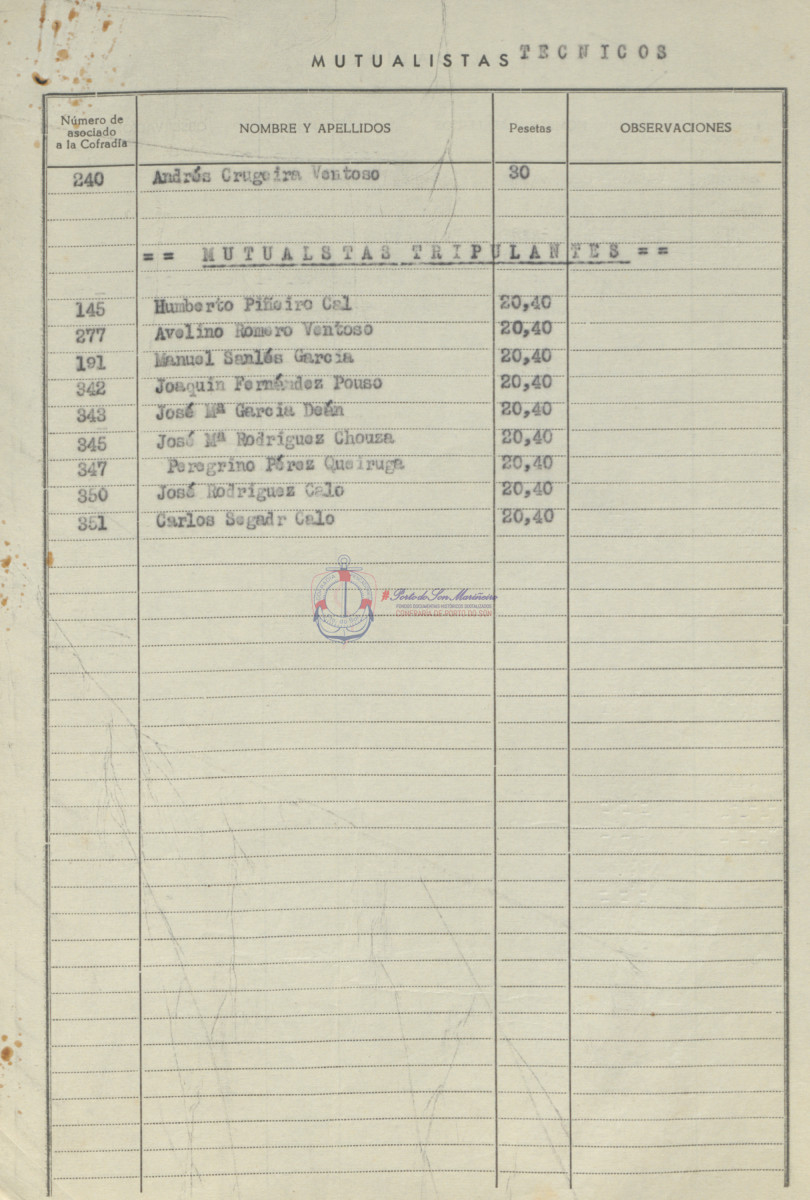 MUTUALISTAS TECNICOS
Número de asociado a la Cofradía NOMBRE Y APELLIDOS Pesetas OBSERVACIONES
240 Andrés Crugeira Ventoso 30
== MUTUALSTAS TRIPULANTES ==
145 Humberto Piñeiro Cal 20,40
277 Avelino Romero Ventoso 20,40
191 Manuel Sanlés Garcia 20,40
342 Joaquin Fernández Pouso 20,40
343 José Mª Garcia Deán 20,40
345 José Mª Rodríguez Chouza 20,40
347 Peregrino Pérez Queiruga 20,40
350 José Rodríguez Calo 20,40
351 Carlos Segadr Calo 20,40
Porto do Son Mariñeiro
CONFRARÍA DE PORTO DO SON